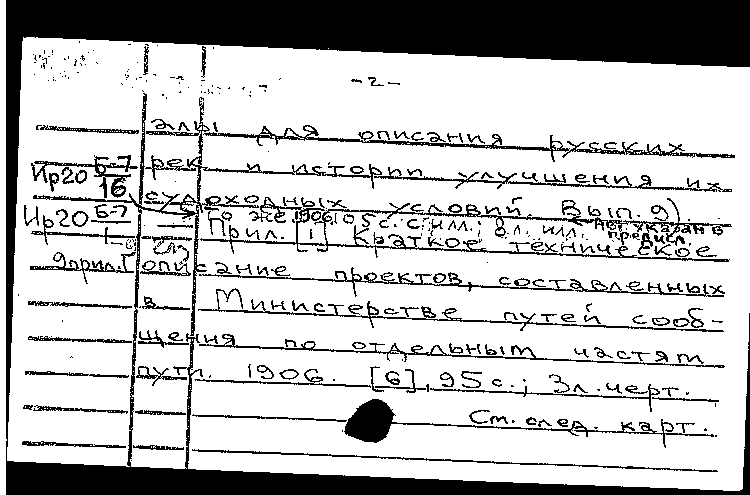 -2-
алы для описания русских
рек и истории улучшения их
судоходных условий. Вып. 9).
Ир20 Б-7/16
То же 1906 105 с. с илл.; 8 л. илл. Авт. указан в предисл.
Ир20 Б-7/1-9
Прил. [1] Краткое техническое
9 прил.
описание проектов, составленных
в Министерстве путей сооб-
щения по отдельным частям
пути. 1906. [6], 95 с.; 3 л. черт.
См. след. карт.